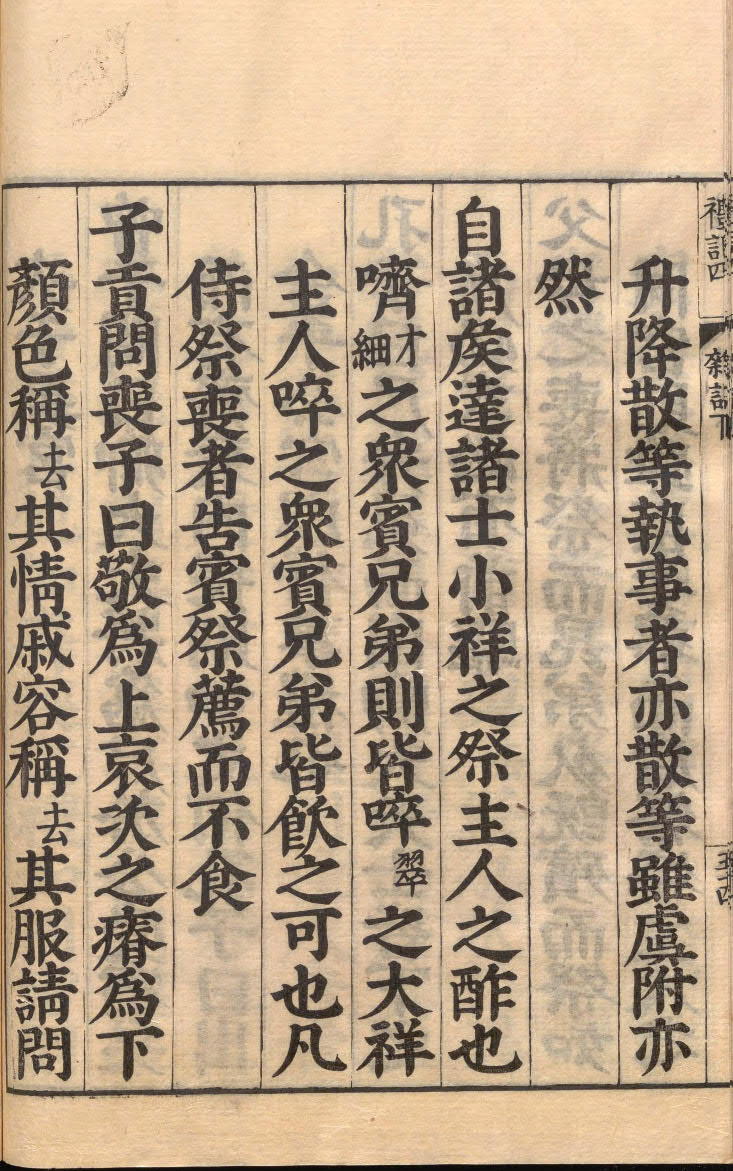 禮記四 雜記下 五十四
升降散等執事者亦散等雖虞附亦
然
自諸矦達諸士小祥之祭主人之酢也
嚌才細之衆賓兄弟則皆啐翠之大祥
主人啐之衆賓兄弟皆飮之可也凡
侍祭喪者告賓祭薦而不食
子貢問喪子曰敬爲上哀次之瘠爲下
顏色稱去其情戚容稱去其服請問